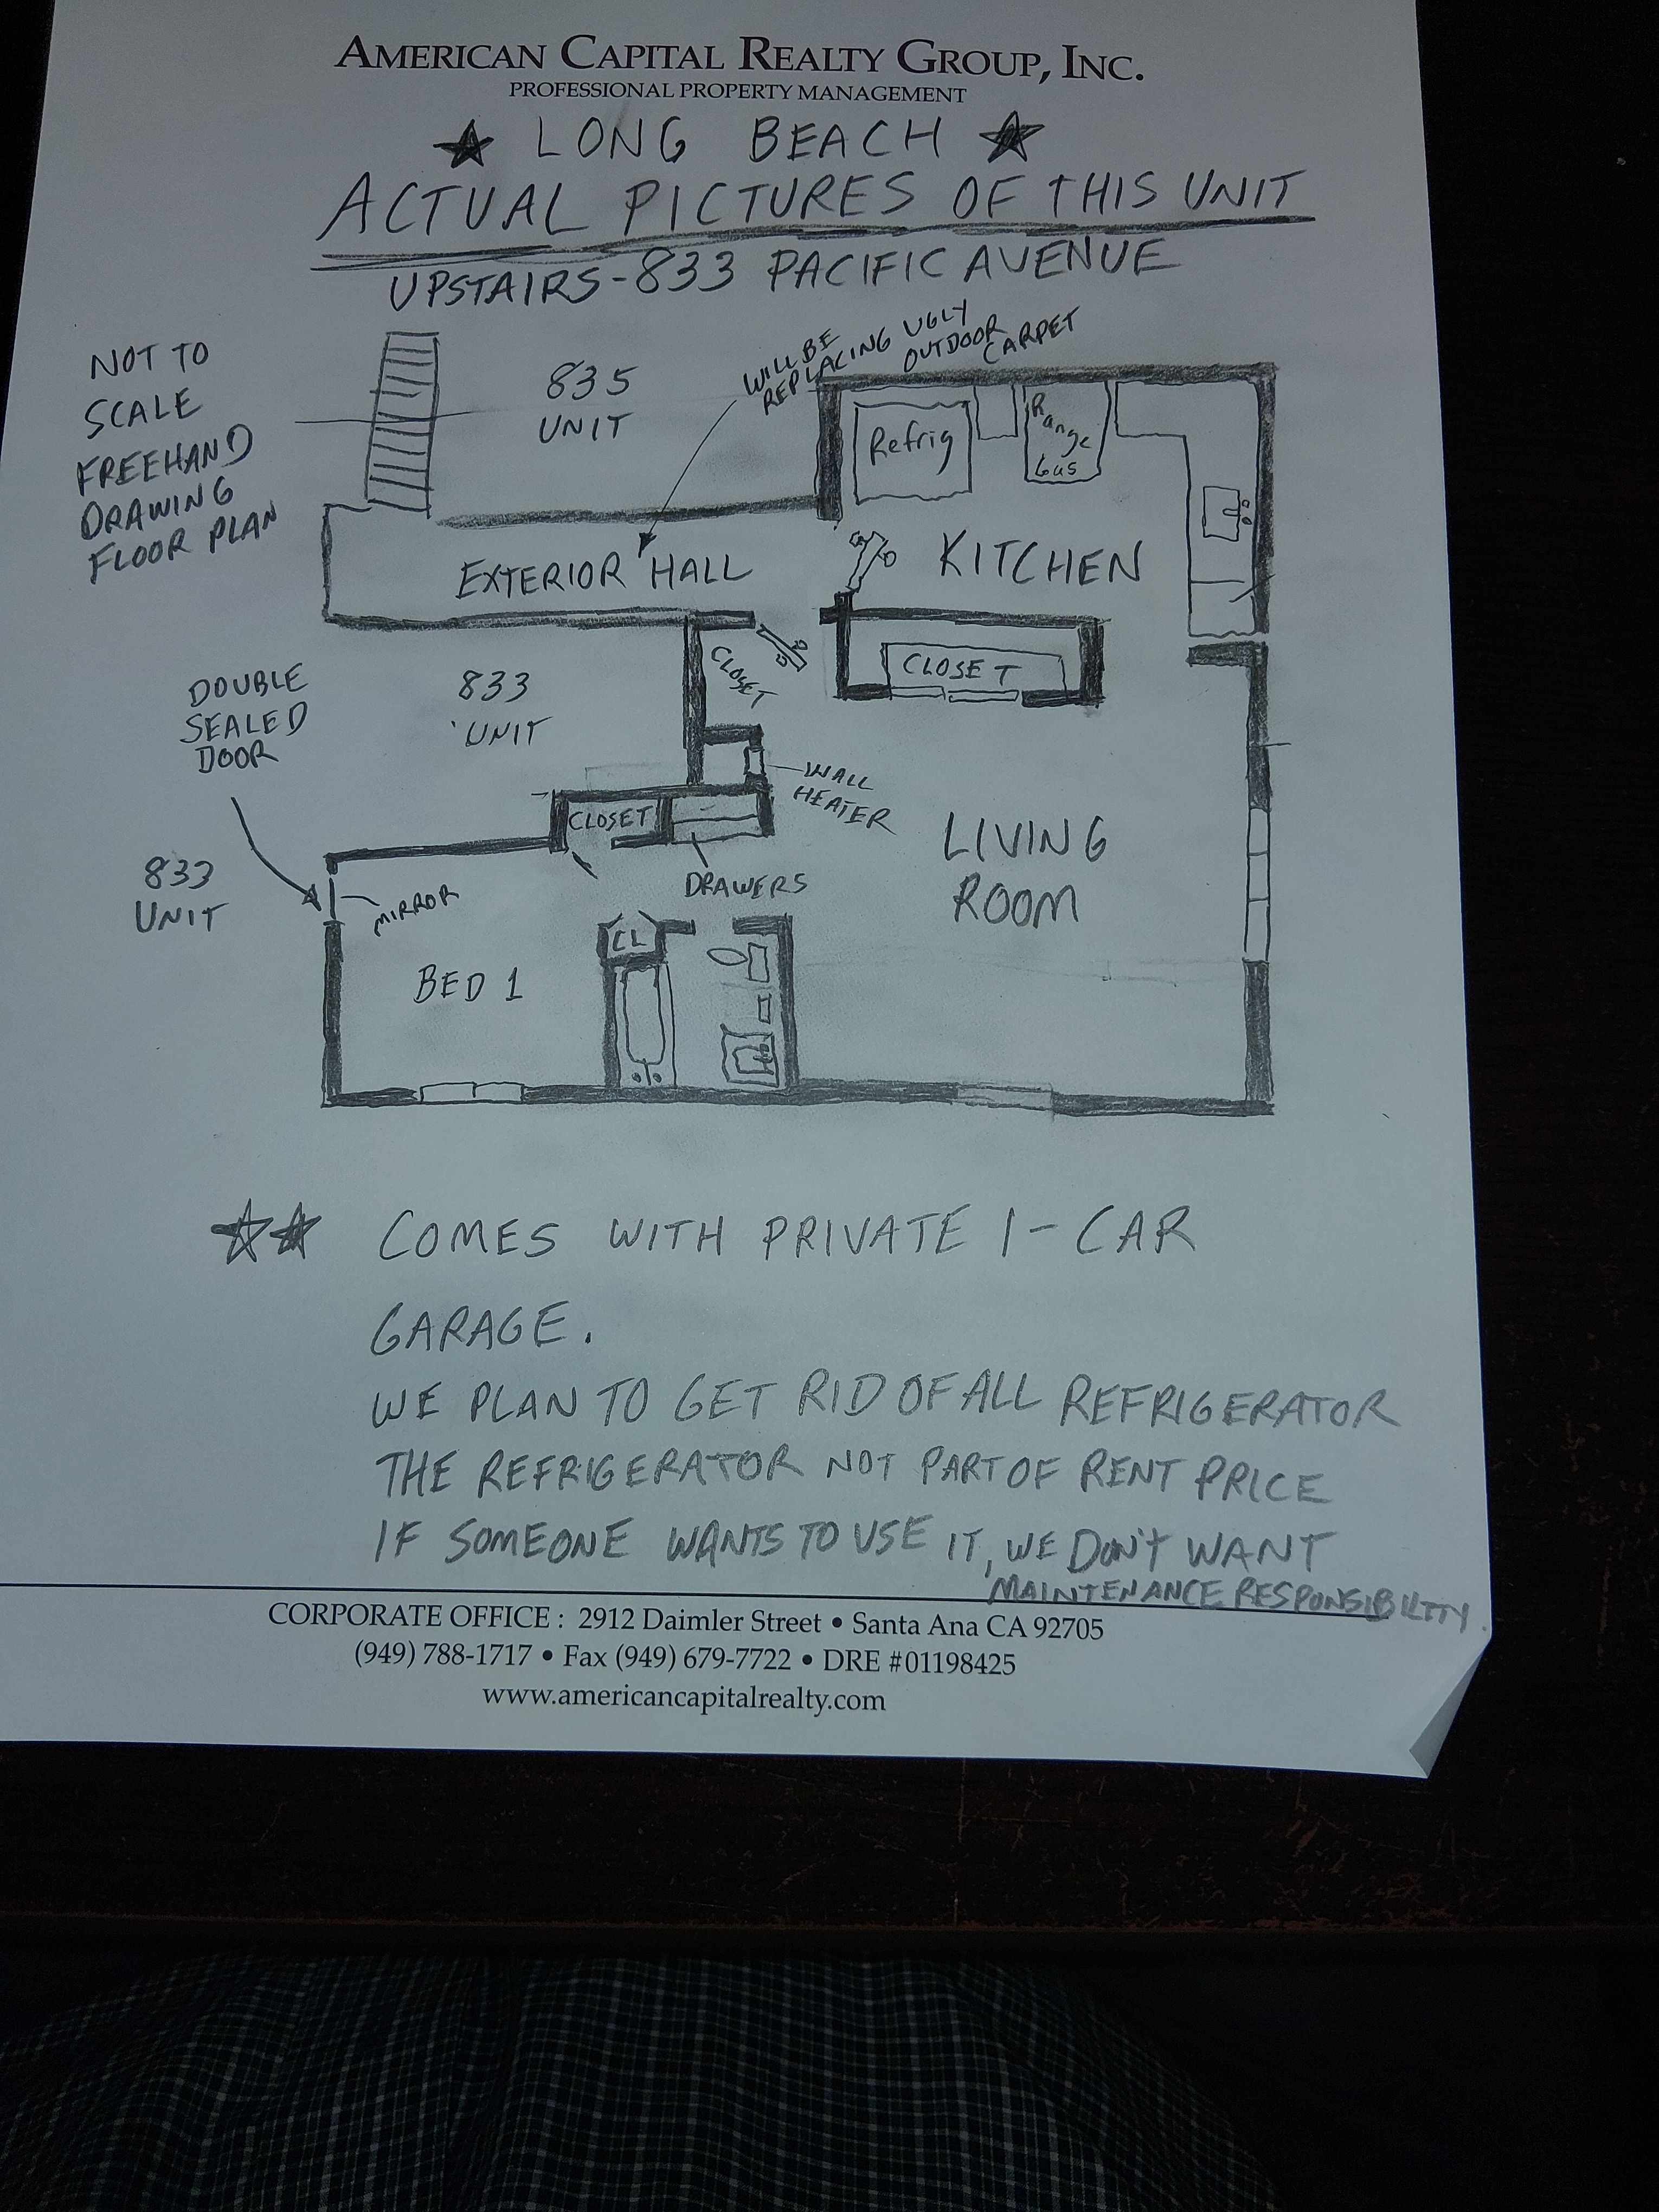 AMERICAN CAPITAL REALTY GROUP, INC.
PROFESSIONAL PROPERTY MANAGEMENT
LONG BEACH
ACTUAL PICTURES OF THIS UNIT
UPSTAIRS-833 PACIFIC AVENUE
NOT TO
SCALE
FREEHAND
DRAWING
FLOOR PLAN
835
UNIT
WILL BE
REPLACING UGLY
OUTDOOR
CARPET
Refrig
Range
Gas
EXTERIOR HALL
KITCHEN
CLOSET
CLOSET
DOUBLE
SEALED
DOOR
833
UNIT
WALL
HEATER
CLOSET
LIVING
ROOM
833
UNIT
MIRROR
DRAWERS
CL
BED 1
COMES WITH PRIVATE 1-CAR
GARAGE.
WE PLAN TO GET RID OF ALL REFRIGERATOR
THE REFRIGERATOR NOT PART OF RENT PRICE
IF SOMEONE WANTS TO USE IT, WE DON'T WANT
MAINTENANCE RESPONSIBILITY.
CORPORATE OFFICE : 2912 Daimler Street • Santa Ana CA 92705
(949) 788-1717 • Fax (949) 679-7722 • DRE #01198425
www.americancapitalrealty.com